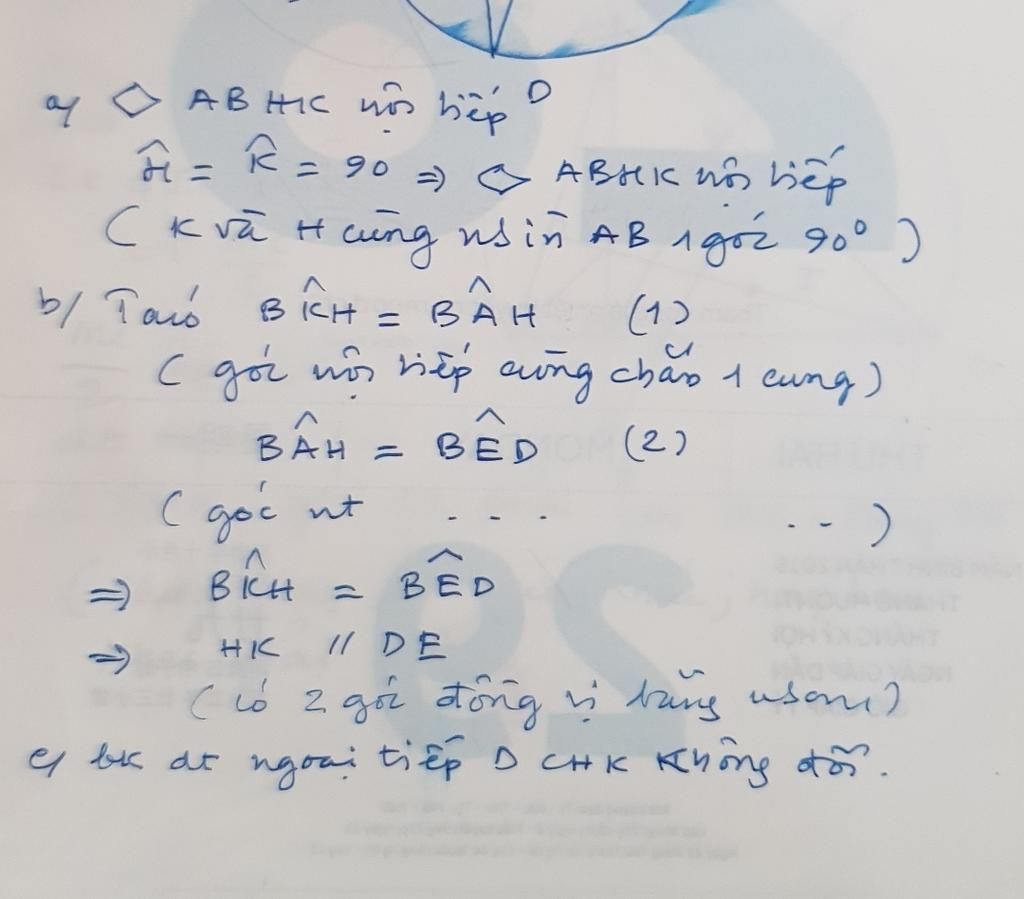 D
a) ◇ ABHK nội tiếp
Ĥ = K̂ = 90 ⇒ ◇ ABHK nội tiếp
( K và H cùng nhìn AB 1 góc 90° )
b/ Ta có BK̂H = BÂH (1)
( góc nội tiếp cùng chắn 1 cung )
BÂH = BÊD (2)
( góc nt . . . . . )
⇒ BK̂H = BÊD
⇒ HK // DE
( có 2 góc đồng vị bằng nhau )
c) bk đt ngoại tiếp Δ CHK không đổi.
THỨ HAI
29
NĂM BÍNH THÂN 2016